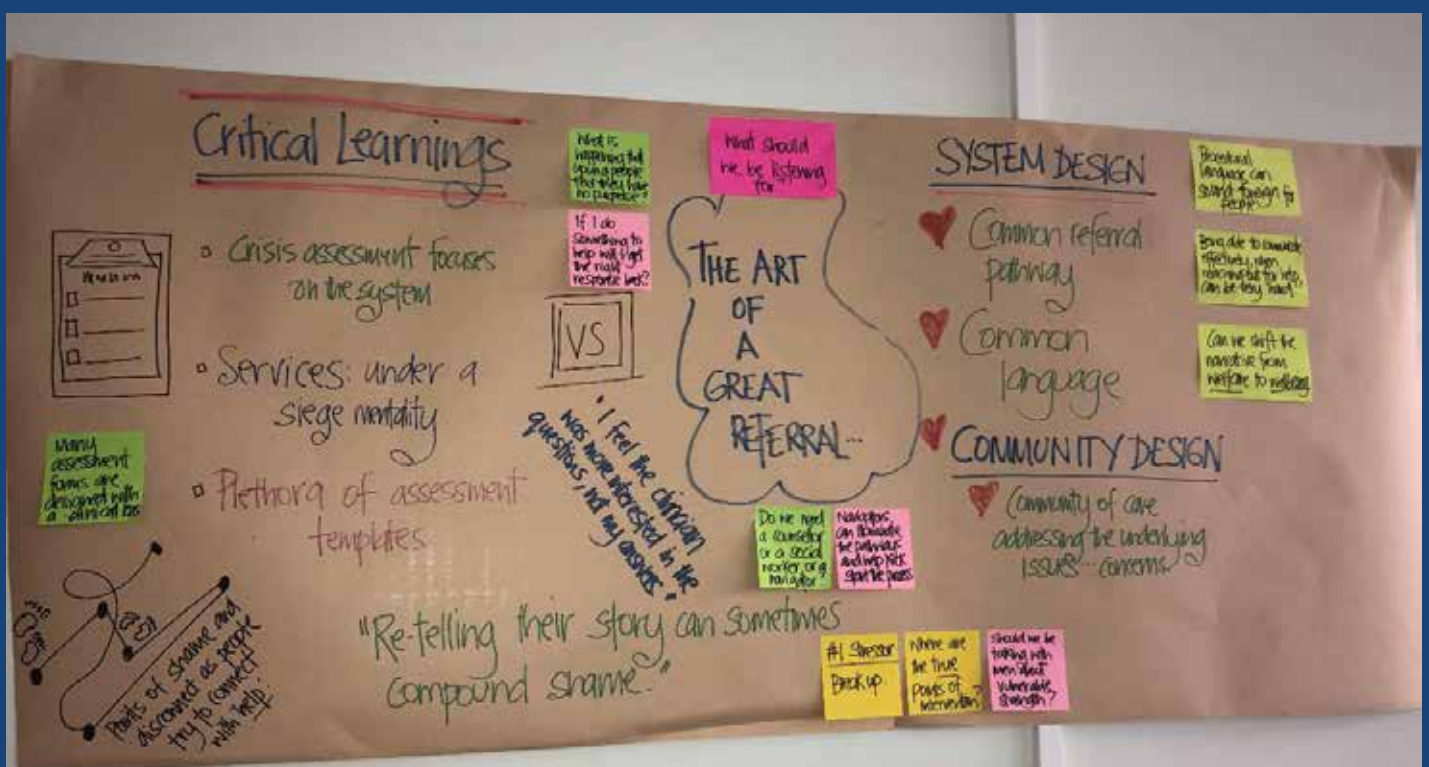 Critical Learnings
Crisis assessment focuses
on the system
Services: under a
siege mentality
Plethora of assessment
templates
Many
assessment
forms are
designed with
a clinical
Points of shame and
disconnect as people
try to connect
with help.
"Re-telling their story can sometimes
compound shame."
What is
happening that
young people
that they have
no purpose?
If I do
something to
help will I get
the right
response back?
VS
"I feel the clinician
was more interested in the
questions, not my answers."
What should
we be listening
for
THE ART
OF
A
GREAT
REFERRAL...
Do we need
a counsellor
or a social
worker, or a
navigator?
Navigators
can
the pathways
and help kick
start the process
#1 Stressor
Break up
Where are
the true
points of
intervention?
Should we be
talking with
men about
vulnerable
strength?
SYSTEM DESIGN
Common referral
pathway
Common
language
COMMUNITY DESIGN
Community of care
addressing the underlying
issues... concerns
language can
sound foreign for
people
Being able to communicate
effectively, when
reaching out for help,
can be very hard
Can we shift the
narrative from
welfare to wellbeing